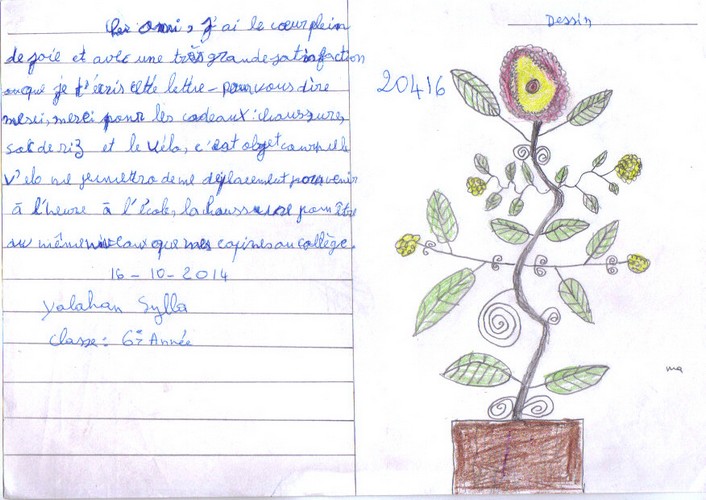 Cher ami, J'ai le cœur plein
de joie et avec une très grande satisfaction
que je t'écris cette lettre - pour vous dire
merci, merci pour les cadeaux : chaussures,
sac de riz et le vélo, c'est objet
vélo me permettra de me déplacement pour venir
à l'heure à l'école, la chaussure pour être
au même niveaux que mes copines au collège.
16-10-2014
Yalahan Sylla
Classe : 6è Année
Dessin
20416
ma